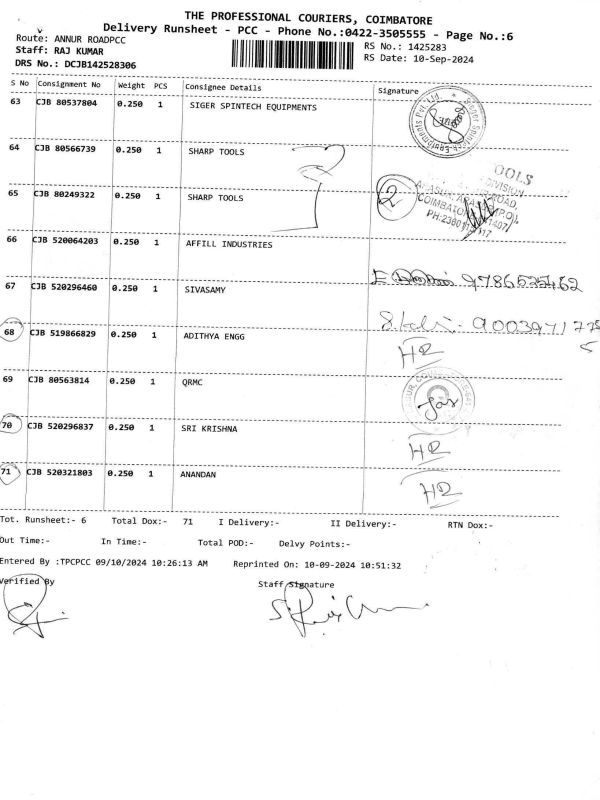 THE PROFESSIONAL COURIERS, COIMBATORE
Delivery Runsheet - PCC - Phone No.:0422-3505555 - Page No.:6
Route: ANNUR ROADPCC
RS No.: 1425283
Staff: RAJ KUMAR
RS Date: 10-Sep-2024
DRS No.: DCJB142528306
S No Consignment No Weight PCS Consignee Details Signature
63 CJB 80537804 0.250 1 SIGER SPINTECH EQUIPMENTS
64 CJB 80566739 0.250 1 SHARP TOOLS
65 CJB 80249322 0.250 1 SHARP TOOLS 2
66 CJB 520064203 0.250 1 AFFILL INDUSTRIES
9786525462
67 CJB 520296460 0.250 1 SIVASAMY
68 CJB 519866829 0.250 1 ADITHYA ENGG
69 CJB 80563814 0.250 1 QRMC
70 CJB 520296837 0.250 1 SRI KRISHNA
71 CJB 520321803 0.250 1 ANANDAN
Tot. Runsheet:- 6 Total Dox:- 71 I Delivery:- II Delivery:- RTN Dox:-
Out Time:- In Time:- Total POD:- Delvy Points:-
Entered By :TPCPCC 09/10/2024 10:26:13 AM Reprinted On: 10-09-2024 10:51:32
Verified By Staff Signature